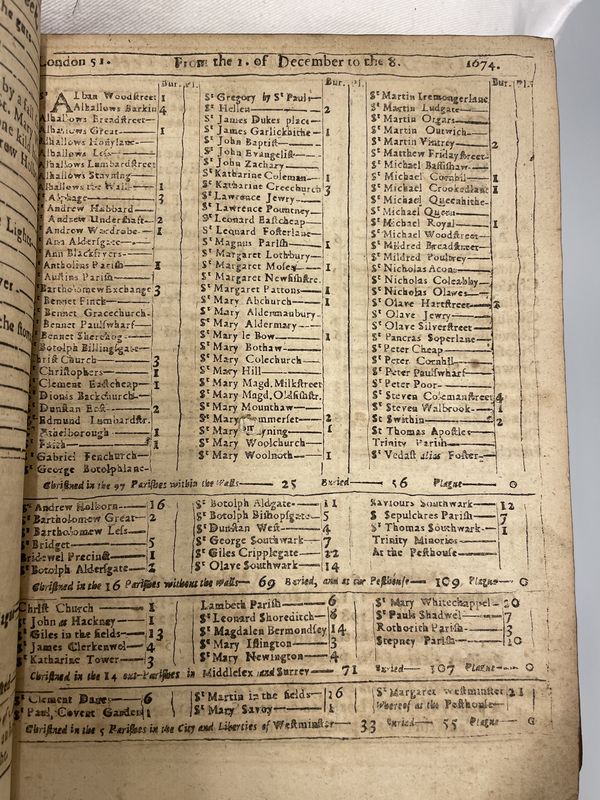 London 51. From the 1. of December to the 8. 1674.
Bur. Pl.
Alban Woodstreet 1
Alhallows Barkin 4
Alhallows Breadstreet
Alhallows Great 1
Alhallows Honylane
Alhallows Less
Alhallows Lumbardstreet
Alhallows Stayning
Alhallows the Wall 1
St Alphage 3
St Andrew Hubbard
St Andrew Undershaft 2
St Andrew Wardrobe 1
St Ann Aldersgate
St Ann Blackfryers
St Antholins Parish 1
St Austins Parish
St Bartholomew Exchange 3
St Bennet Finck
St Bennet Gracechurch
St Bennet Paulswharf
St Bennet Sherehog
St Botolph Billingsgate
Christ Church 3
St Christophers 1
St Clement Eastcheap 1
St Dionis Backchurch
St Dunstan East 2
St Edmund Lumbardstr.
St Ethelborough 1
St Faith 1
St Gabriel Fenchurch
St George Botolphlane
Bur. Pl.
St Gregory by St Pauls
St Hellen 2
St James Dukes place
St James Garlickhithe 1
St John Baptist
St John Evangelist
St John Zachary
St Katharine Coleman 1
St Katharine Creechurch 3
St Lawrence Jewry
St Lawrence Pountney
St Leonard Eastcheap
St Leonard Fosterlane
St Magnus Parish 1
St Margaret Lothbury
St Margaret Moses 1
St Margaret Newfishstre.
St Margaret Pattons 1
St Mary Abchurch 1
St Mary Aldermanbury
St Mary Aldermary
St Mary le Bow 1
St Mary Bothaw
St Mary Colechurch
St Mary Hill
St Mary Magd. Milkstreet
St Mary Magd. Oldfishstr.
St Mary Mounthaw
St Mary Sommerset 2
St Mary 1
St Mary Woolchurch
St Mary Woolnoth 1
Bur. Pl.
St Martin Iremongerlane
St Martin Ludgate
St Martin Orgars
St Martin Outwich
St Martin Vintrey 2
St Matthew Fridaystreet
St Michael Bassishaw
St Michael Cornhil 1
St Michael Crookedlane 1
St Michael Queenhithe
St Michael Queen
St Michael Royal 1
St Michael Woodstreet
St Mildred Breadstreet
St Mildred Poultrey
St Nicholas Acons
St Nicholas Coleabby
St Nicholas Olaves
St Olave Hartstreet 2
St Olave Jewry
St Olave Silverstreet
St Pancras Soperlane
St Peter Cheap
St Peter Cornhil
St Peter Paulswharf
St Peter Poor
St Steven Colemanstreet 4
St Steven Walbrook 1
St Swithin 2
St Thomas Apostles
Trinity Parish
St Vedast alias Foster
Christned in the 97 Parishes within the Walls 25 Buried 56 Plague 0
St Andrew Holborn 16
St Bartholomew Great 2
St Bartholomew Less
St Bridget 5
Bridewel Precinct 1
St Botolph Aldersgate 2
St Botolph Aldgate 11
St Botolph Bishopsgate 5
St Dunstan West 4
St George Southwark 7
St Giles Cripplegate 22
St Olave Southwark 14
Saviours Southwark 12
S Sepulchres Parish 7
St Thomas Southwark 1
Trinity Minories
At the Pesthouse
Christned in the 16 Parishes without the walls 69 Buried, and at the Pesthouse 109 Plague 0
Christ Church 1
St John at Hackney 1
St Giles in the fields 13
St James Clerkenwel 4
St Katharine Tower 3
Lambeth Parish 6
St Leonard Shoreditch 8
St Magdalen Bermondsey 14
St Mary Islington 3
St Mary Newington 4
St Mary Whitechappel 20
St Pauls Shadwel 7
Rothorith Parish 3
Stepney Parish 20
Christned in the 14 out-Parishes in Middlesex and Surrey 71 Buried 107 Plague 0
St Clement Danes 6
St Paul, Covent Garden 1
St Martin in the fields 26
St Mary Savoy 1
St Margaret Westminster 21
Whereof at the Pesthouse
Christned in the 5 Parishes in the City and Liberties of Westminster 33 Buried 55 Plague 0